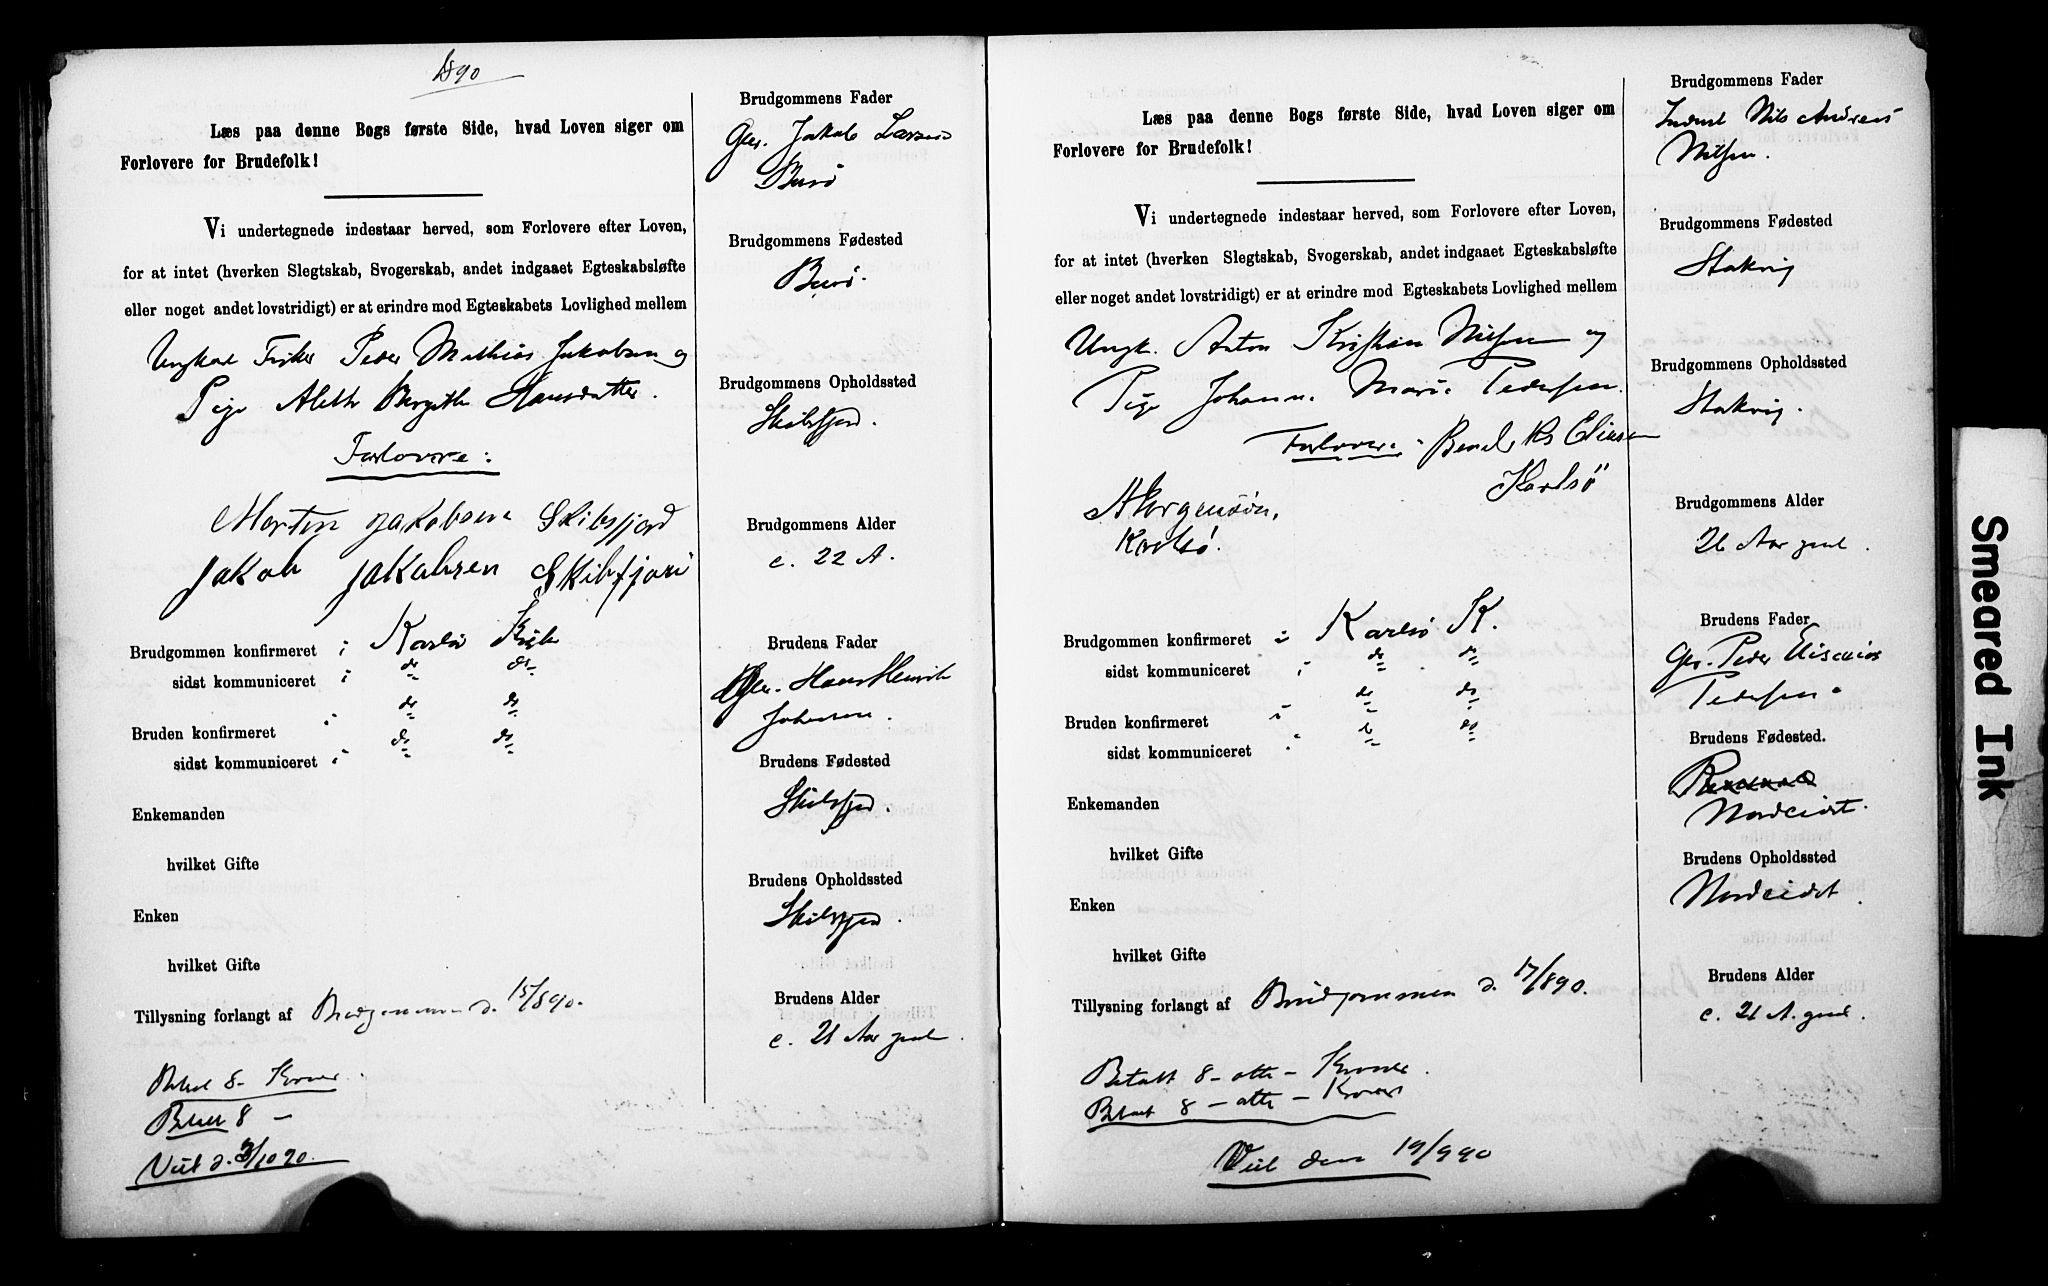 1890
Læs paa denne Bogs første Side, hvad Loven siger om
Forlovere for Brudefolk!
Vi undertegnede indestaar herved, som Forlovere efter Loven,
for at intet (hverken Slegtskab, Svogerskab, andet indgaaet Egteskabsløfte
eller noget andet lovstridigt) er at erindre mod Egteskabets Lovlighed mellem
Ungkar Fisker Peder Mathias Jakobsen og
Pige Aleth Bergithe Hansdatter.
Forlovere:
Morten Jakobsen Skibsfjord
Jakob Jakobsen Skibsfjord
Brudgommen konfirmeret i Karlsø Kirke
sidst kommuniceret i do do
Bruden konfirmeret i do do
sidst kommuniceret i do do
Enkemanden
hvilket Gifte
Enken
hvilket Gifte
Tillysning forlangt af Brudgommen d. 15/8 90.
Betalt 8 - Kroner.
Betalt 8 -
Viet d. 3/10 90.
Brudgommens Fader
Gbr. Jakob Larsen
Burø
Brudgommens Fødested
Burø.
Brudgommens Opholdssted
Skibsfjord.
Brudgommens Alder
c. 22 A.
Brudens Fader
Gbr. Hans Henrik
Johnsen.
Brudens Fødested
Skibsfjord.
Brudens Opholdssted
Skibsfjord.
Brudens Alder
c. 21 Aar gml.
Læs paa denne Bogs første Side, hvad Loven siger om
Forlovere for Brudefolk!
Vi undertegnede indestaar herved, som Forlovere efter Loven,
for at intet (hverken Slegtskab, Svogerskab, andet indgaaet Egteskabsløfte
eller noget andet lovstridigt) er at erindre mod Egteskabets Lovlighed mellem
Ungk. Anton Kristian Nilsen og
Pige Johanne Marie Pedersen.
Forlovere: Elisen
Karlsø
Karlsø.
Brudgommen konfirmeret i Karlsø K.
sidst kommuniceret i do do
Bruden konfirmeret i do do
sidst kommuniceret i do do
Enkemanden
hvilket Gifte
Enken
hvilket Gifte
Tillysning forlangt af Brudgommen d. 17/8 90.
Betalt 8 - otte - Kroner.
Betalt 8 - otte - Kroner
Viet den 19/9 90
Brudgommens Fader
Inderst Nils Andreas
Nilsen.
Brudgommens Fødested
Stakvig
Brudgommens Opholdssted
Stakvig.
Brudgommens Alder
26 Aar gml.
Brudens Fader
Gbr. Peder Eliseus
Pedersen.
Brudens Fødested.
Nordeidet.
Brudens Opholdssted
Nordeidet.
Brudens Alder
c. 21 A. gml.
Smeared Ink